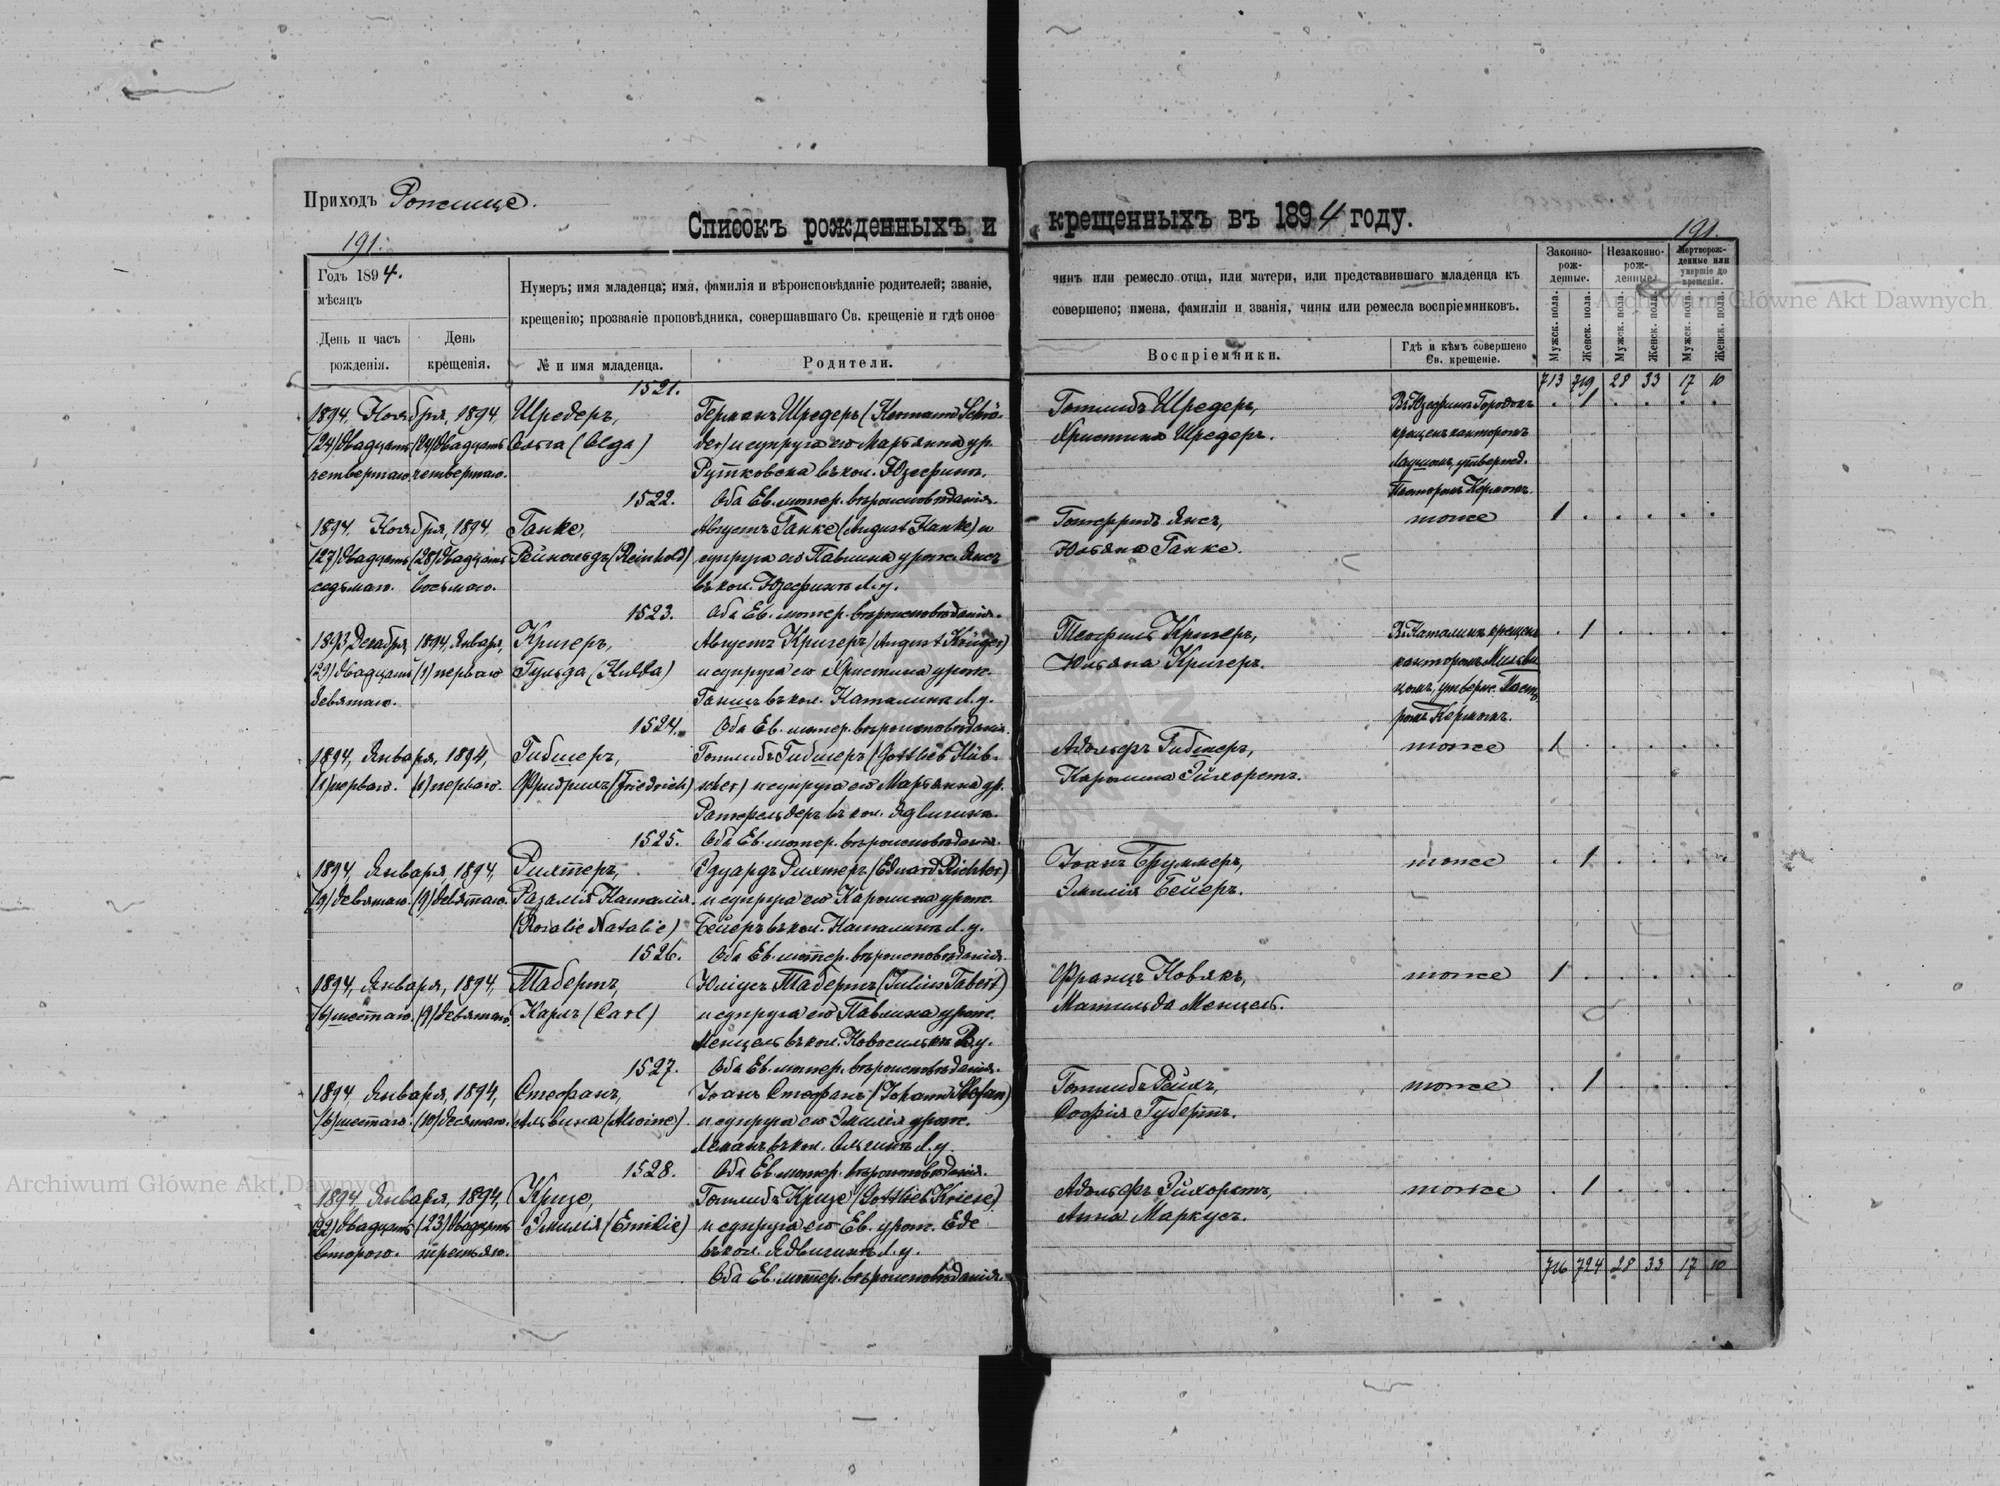 Приходъ Рожище.
Списокъ рожденныхъ и крещенныхъ въ 1894 году.
191.
191.
Годъ 1894.
мѣсяцъ
День и часъ рожденія.
День крещенія.
Нумеръ; имя младенца; имя, фамилія и вѣроисповѣданіе родителей; званіе,
чинъ или ремесло отца, или матери, или представившаго младенца къ
крещенію; прозваніе проповѣдника, совершавшаго Св. крещеніе и гдѣ оное
совершено; имена, фамиліи и званія, чины или ремесла воспріемниковъ.
№ и имя младенца.
Родители.
Воспріемники.
Гдѣ и кѣмъ совершено
Св. крещеніе.
Законно-
рож-
денные.
Незаконно-
рож-
денные.
Мертворож-
денные или
умершіе до
крещенія.
Мужск. пола.
Женск. пола.
Мужск. пола.
Женск. пола.
Мужск. пола.
Женск. пола.
713 719 28 33 17 10
1521.
1894, Ноября, 1894,
(24) двадцать (24) двадцать
четвертаго. четвертаго.
Шредеръ,
Ольга (Olga)
Германъ Шредеръ (Hermann Schrö-
der) и супруга его Марьянна ур.
Рутковска въ кол. Юзефинъ.
Оба Ев. лютер. вѣроисповѣданія.
Готлибъ Шредеръ,
Христина Шредеръ.
крещенъ канторомъ
Пасторомъ Кермомъ.
. 1 . . . .
1522.
1894, Ноября, 1894,
(27) двадцать (28) двадцать
седьмаго. восьмаго.
Ганке,
Рейнольдъ (Reinhold)
Августъ Ганке (August Hanke) и
супруга его Павлина урож. Янсъ
въ кол. Юзефинъ Л. у.
Оба Ев. лютер. вѣроисповѣданія.
Готфридъ Янсъ,
Юльяна Ганке.
тоже
1 . . . . .
1523.
1893, Декабря, 1894, Января,
(29) двадцать (1) перваго
девятаго.
Кригеръ,
Гульда (Hulda)
Августъ Кригеръ (August Krüger)
и супруга его Христина урож.
въ кол. Наталинъ Л. у.
Оба Ев. лютер. вѣроисповѣданія.
Теофиль Кригеръ,
Юльяна Кригеръ.
Въ Наталинъ крещенъ
канторомъ
цомъ, утвержд. Пасто-
ромъ Кермомъ.
. 1 . . . .
1524.
1894, Января, 1894,
(1) перваго. (1) перваго.
Гибшеръ,
Фридрихъ (Friedrich)
Готлибъ Гибшеръ (Gottlieb Hüb-
scher) и супруга его Марьянна ур.
въ кол. Ядвигинъ.
Оба Ев. лютер. вѣроисповѣданія.
Адольфъ Гибшеръ,
Каролина Эйхорстъ.
тоже
1 . . . . .
1525.
1894, Января, 1894,
(9) девятаго. (9) девятаго.
Рихтеръ,
Розалія Наталія.
(Rosalie Natalie)
Эдуардъ Рихтеръ (Eduard Richter)
и супруга его Каролина урож.
Бейеръ въ кол. Наталинъ Л. у.
Оба Ев. лютер. вѣроисповѣданія.
Іоанъ Бруммеръ,
Эмилія Бейеръ.
тоже
. 1 . . . .
1526.
1894, Января, 1894,
(6) шестаго. (9) девятаго.
Табертъ,
Карлъ (Carl)
Юліусъ Табертъ (Julius Tabert)
и супруга его Павлина урож.
Менцель въ кол. Новосилки В. у.
Оба Ев. лютер. вѣроисповѣданія.
Францъ Новякъ,
Матильда Менцель.
тоже
1 . . . . .
1527.
1894, Января, 1894,
(6) шестаго. (10) десятаго.
Стефанъ,
Альвина (Alwine)
Іоанъ Стефанъ (Johann Stefan)
и супруга его Эмилія урож.
Леманъ въ кол. Ольгинъ Л. у.
Оба Ев. лютер. вѣроисповѣданія.
Готлибъ Рейхъ,
Софія Губертъ.
тоже
. 1 . . . .
1528.
1894, Января, 1894,
(22) двадцать (23) двадцать
втораго. третьяго.
Кризе,
Эмилія (Emilie)
Готлибъ Кризе (Gottlieb Kriese)
и супруга его Ев. урож. Еде
въ кол. Ядвигинъ Л. у.
Оба Ев. лютер. вѣроисповѣданія.
Адольфъ Эйхорстъ,
Анна Маркусъ.
тоже
. 1 . . . .
716 724 28 33 17 10
Archiwum Główne Akt Dawnych
Archiwum Główne Akt Dawnych